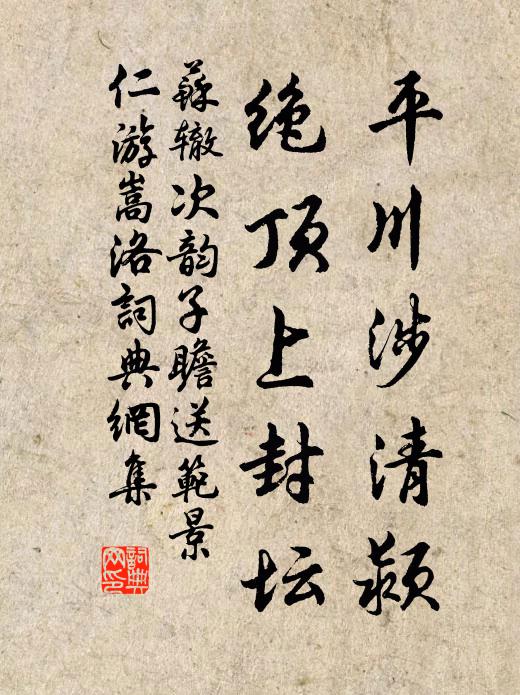 平川涉清颍
绝顶上封坛
蘇辙次韵子瞻送範景
仁游嵩洛詞典網集
詞典网印